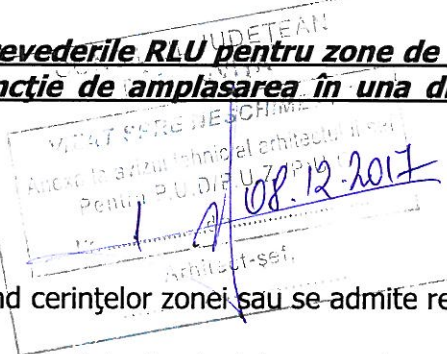 revederile RLU pentru zone de
JUDEȚEAN
ncție de amplasarea în una di
VIZAT SPRE NESCHIMB
Anexă la avizul tehnic al arhitectului șef
Pentru P.U.D/P.U.Z/P.U.
08.12.2017
Arhitect-șef,
nd cerinţelor zonei sau se admite re